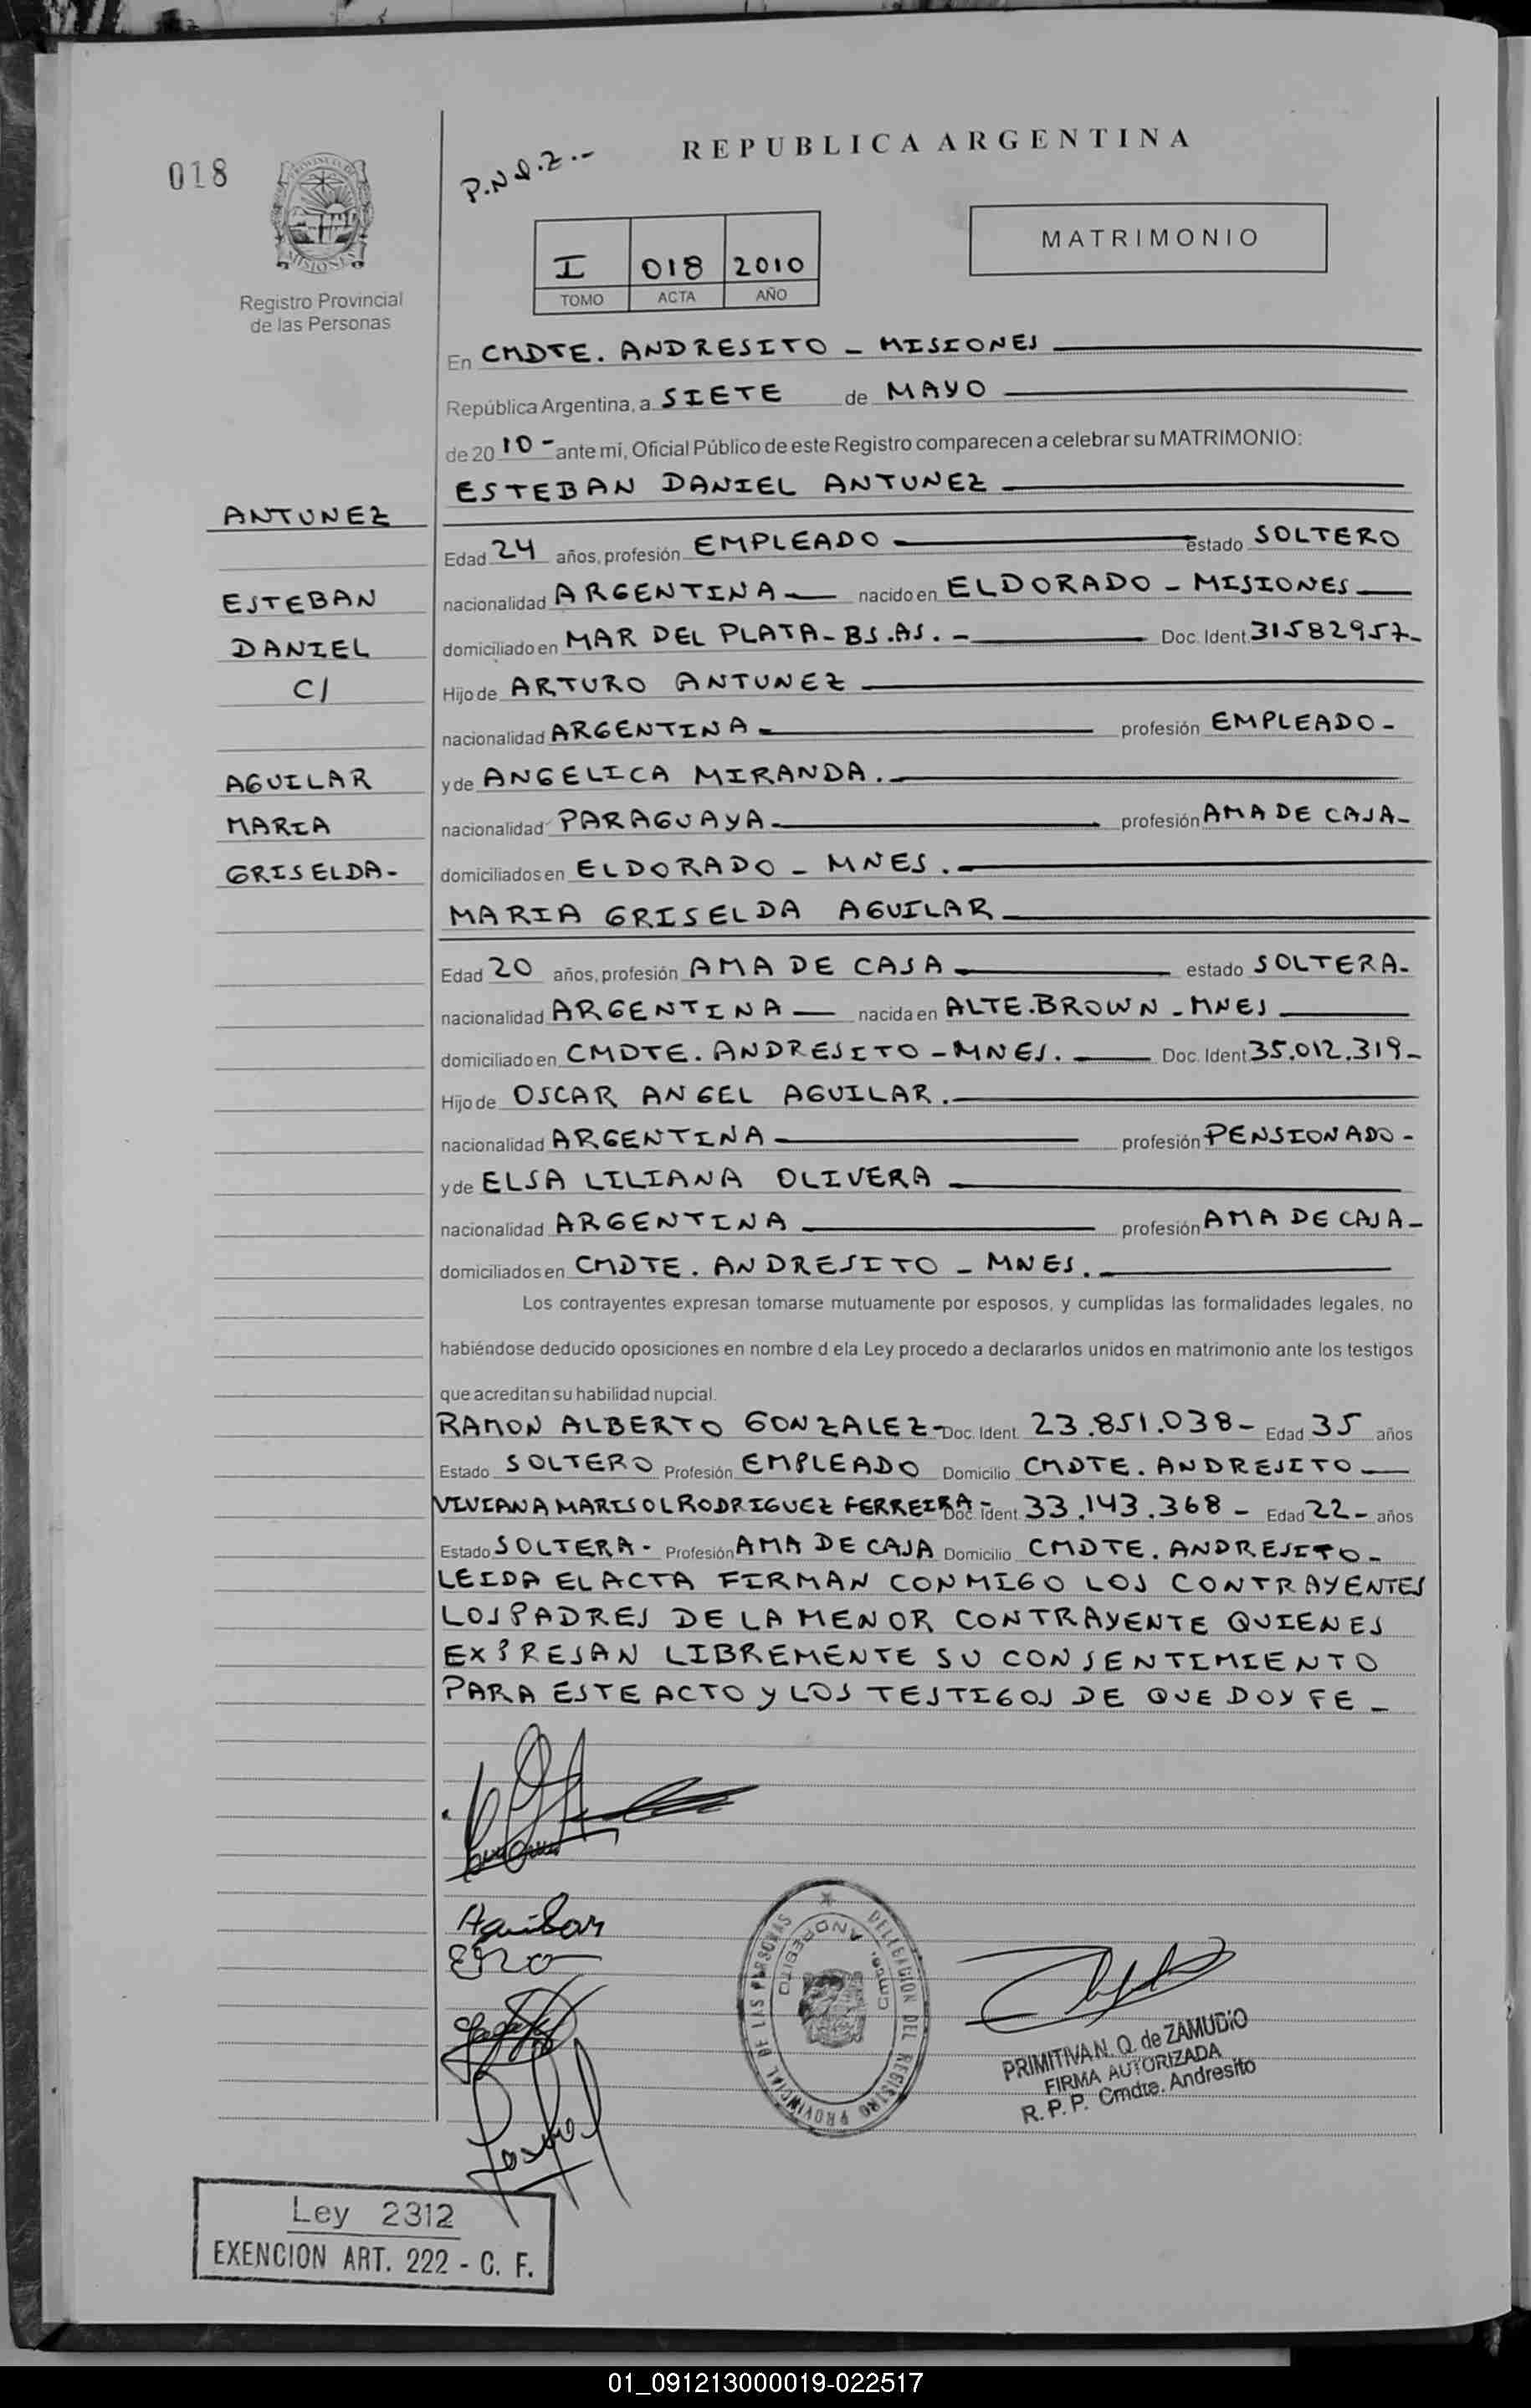 018
PROVINCIA DE
MISIONES
Registro Provincial
de las Personas
P.N.Q.Z.-
REPUBLICA ARGENTINA
MATRIMONIO
I 018 2010
TOMO ACTA AÑO
En CMDTE. ANDRESITO - MISIONES
República Argentina, a SIETE de MAYO
de 20 10 - ante mi, Oficial Público de este Registro comparecen a celebrar su MATRIMONIO:
ESTEBAN DANIEL ANTUNEZ
ANTUNEZ
Edad 24 años, profesión EMPLEADO estado SOLTERO
ESTEBAN
nacionalidad ARGENTINA nacido en ELDORADO - MISIONES
DANIEL
domiciliado en MAR DEL PLATA - BS.AS. - Doc. Ident. 31582957-
C/
Hijo de ARTURO ANTUNEZ
nacionalidad ARGENTINA profesión EMPLEADO -
AGUILAR
y de ANGELICA MIRANDA.
MARIA
nacionalidad PARAGUAYA profesión AMA DE CASA-
GRISELDA-
domiciliados en ELDORADO - MNES.
MARIA GRISELDA AGUILAR
Edad 20 años, profesión AMA DE CASA estado SOLTERA-
nacionalidad ARGENTINA nacida en ALTE. BROWN - MNES
domiciliado en CMDTE. ANDRESITO - MNES. Doc. Ident. 35.012.319-
Hijo de OSCAR ANGEL AGUILAR.
nacionalidad ARGENTINA profesión PENSIONADO -
y de ELSA LILIANA OLIVERA
nacionalidad ARGENTINA profesión AMA DE CASA-
domiciliados en CMDTE. ANDRESITO - MNES.
Los contrayentes expresan tomarse mutuamente por esposos, y cumplidas las formalidades legales, no
habiéndose deducido oposiciones en nombre d ela Ley procedo a declararlos unidos en matrimonio ante los testigos
que acreditan su habilidad nupcial.
RAMON ALBERTO GONZALEZ- Doc. Ident. 23.851.038- Edad 35 años
Estado SOLTERO Profesión EMPLEADO Domicilio CMDTE. ANDRESITO
VIVIANA MARISOL RODRIGUEZ FERREIRA- Doc. Ident. 33.143.368 - Edad 22- años
Estado SOLTERA- Profesión AMA DE CASA Domicilio CMDTE. ANDRESITO-
LEIDA EL ACTA FIRMAN CONMIGO LOS CONTRAYENTES
LOS PADRES DE LA MENOR CONTRAYENTE QUIENES
EXPRESAN LIBREMENTE SU CONSENTIMIENTO
PARA ESTE ACTO Y LOS TESTIGOS DE QUE DOY FE -
Aguilar
DELEGACION DEL REGISTRO PROVINCIAL DE LAS PERSONAS
CMDTE. ANDRESITO
PRIMITIVA N. Q. de ZAMUDIO
FIRMA AUTORIZADA
R. P. P. Cmdte. Andresito
Ley 2312
EXENCION ART. 222 - C. F.
01_091213000019-022517